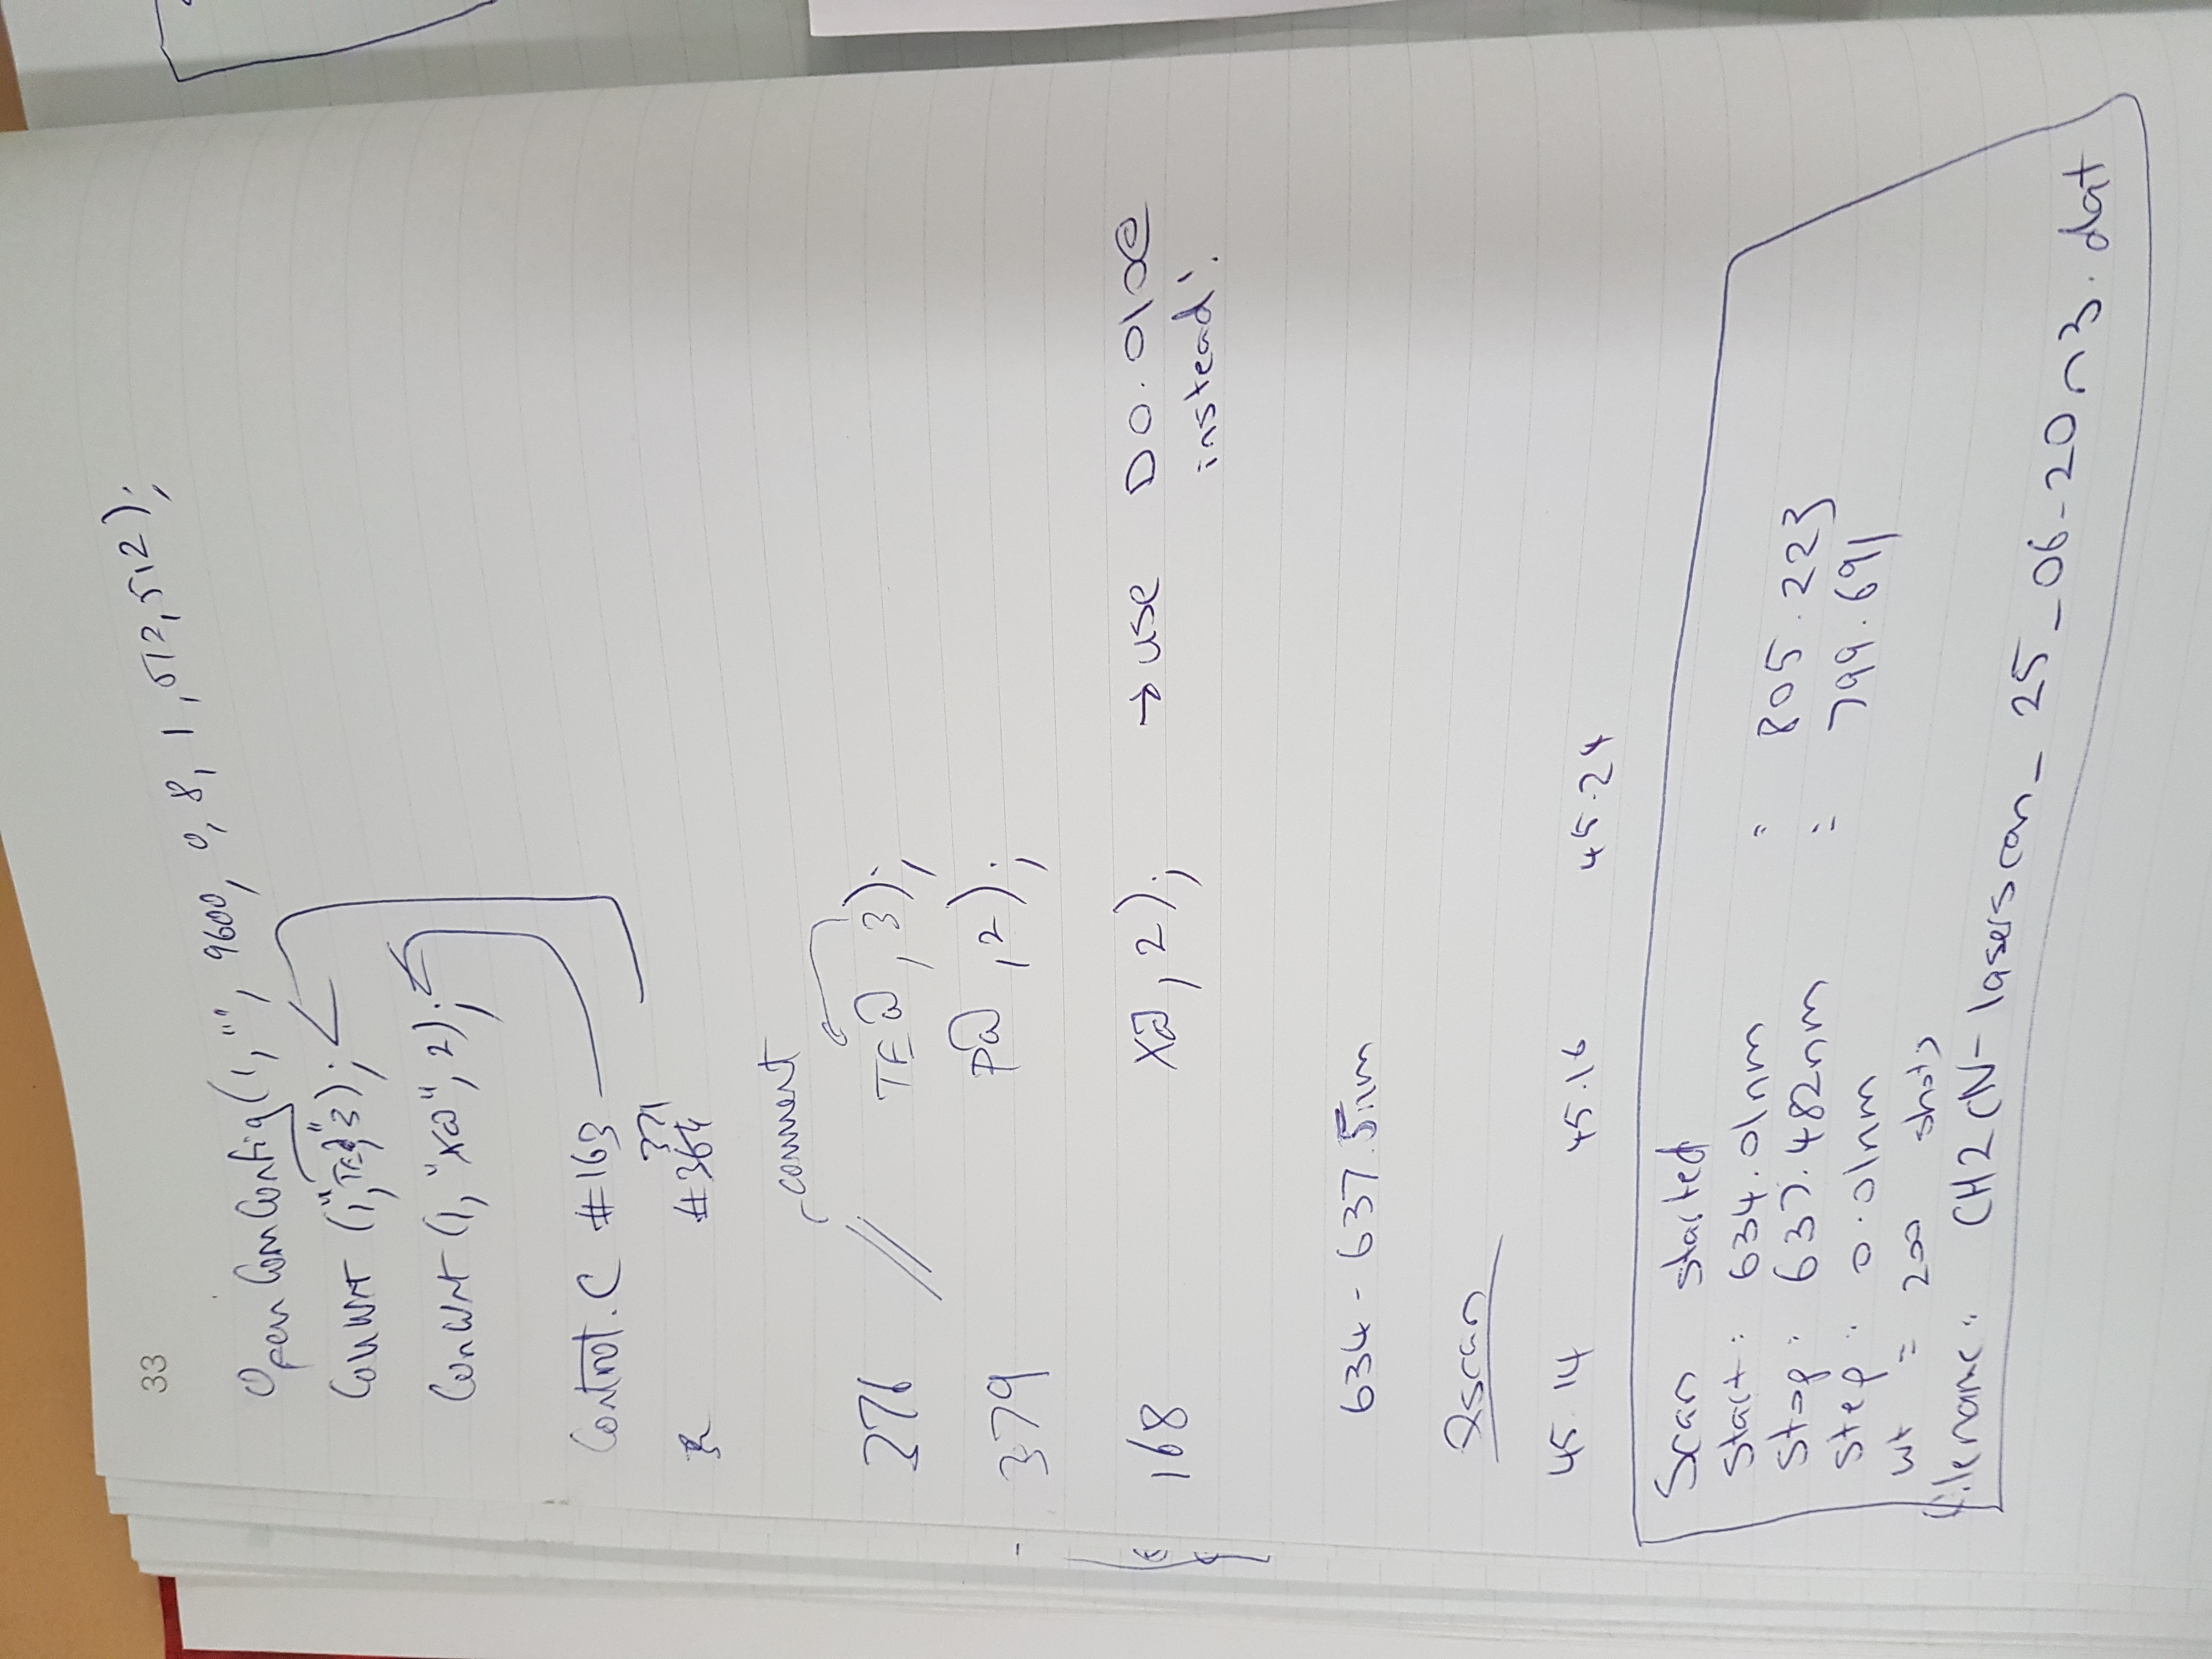 33
OpenComConfig(1, "", 9600, 0, 8, 1, 512, 512);
ComWrt (1, "TE@", 3);
ComWrt (1, "X@", 2);
Control.C #163
371
#364
comment
376 // TE@, 3);
379 P@, 2);
168 X@, 2); → use D0.010@
instead!
634 - 637.5nm
Qscan
45.14 45.16 45.24
Scan started
Start: 634.01nm = 805.223
Stop: 637.482nm = 799.691
Step: 0.01nm
wt = 200 shots
filename: CH2CN-laserscan_25_06-20n3.dat